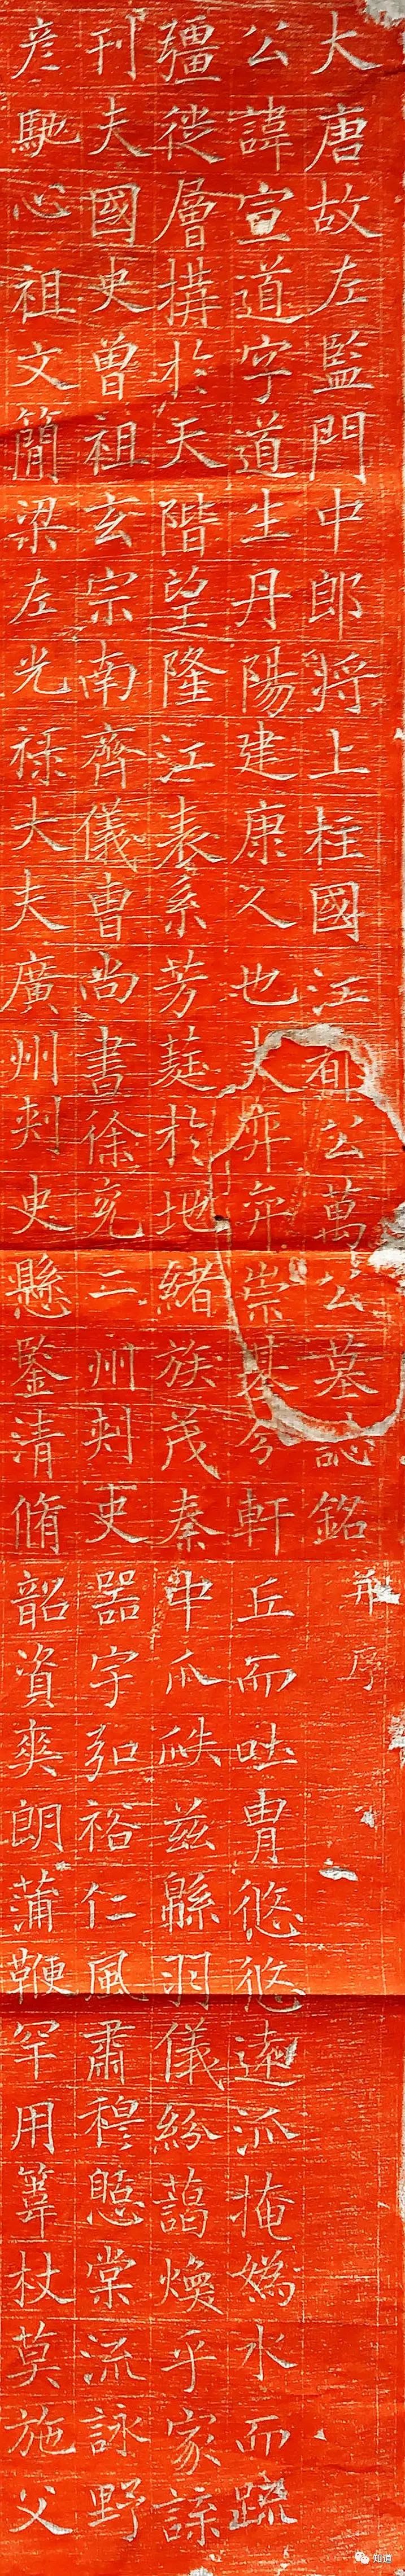 大唐故左監門中郎將上柱國江都公萬公墓誌銘并序
公諱宣道字道生丹陽建康人也夫弈弈崇基分軒丘而吐胄悠悠遠派掩媯水而疏
疆從層搆於天階望隆江表系芳蕤於地緒族茂秦中瓜瓞兹緜羽儀紛藹煥乎家諜
刊夫國史曾祖玄宗南齊儀曹尚書徐兖二州刺史器宇弘裕仁風肅穆憩棠流詠野
彦馳心祖文簡梁左光祿大夫廣州刺史懸鑒清脩韶資爽朗蒲鞭罕用葦杖莫施父
知道